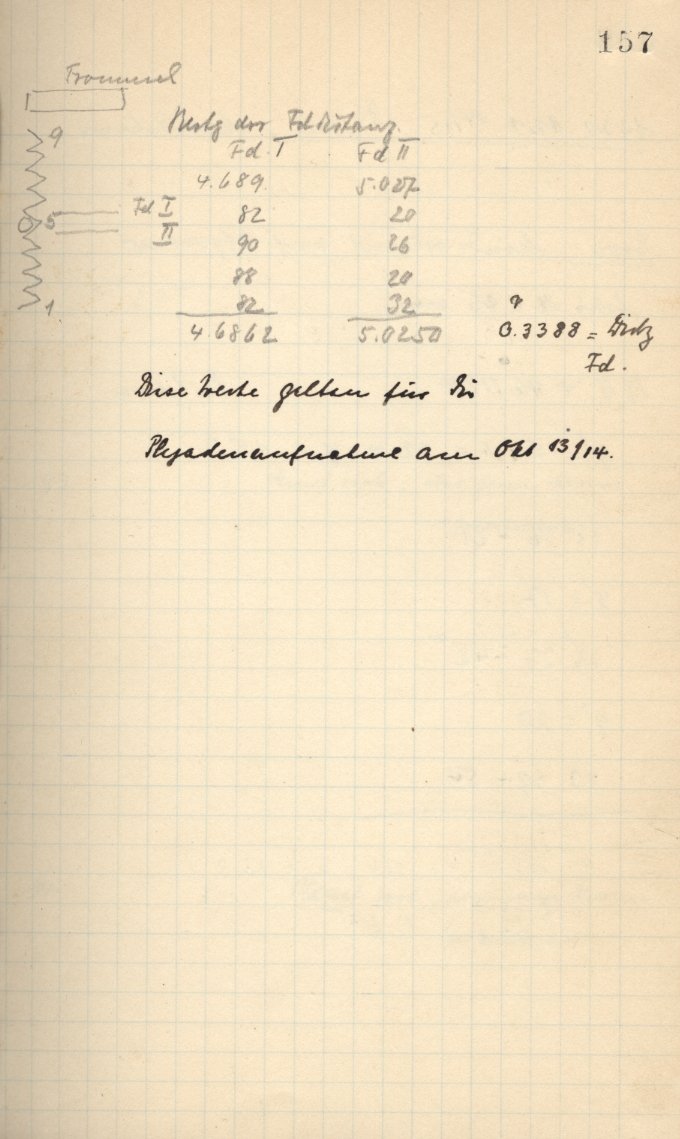 157
Trommel
9
Bestg der Fd Distanz.
Fd. I Fd II
4.689 5.027
0 5 Fd I 82 20
II 90 26
88 20
1 82 32
4.6862 5.0250 0.3388 = Distz
Fd.
Diese Werte gelten für die
Plejadenaufnahme am Okt 13/14.